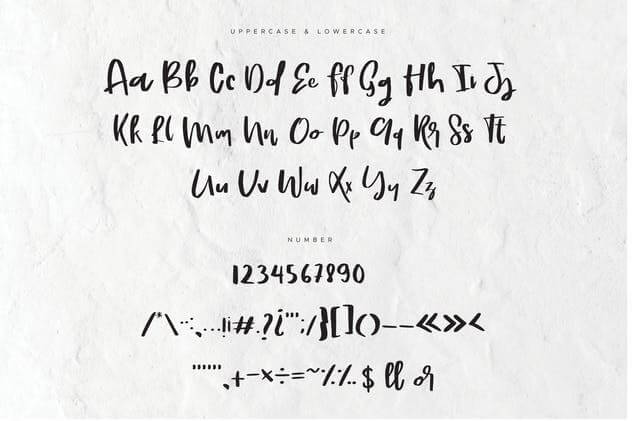 UPPERCASE & LOWERCASE
Aa Bb Cc Dd Ee Ff Gg Hh Ii Jj
Kk Ll Mm Nn Oo Pp Qq Rr Ss Tt
Uu Vv Ww Xx Yy Zz
NUMBER
1234567890
/*\ ··:,...!¡#.?¿"';/}[]()––«»<
"""",+−×÷=~⁒·/..$ ll or